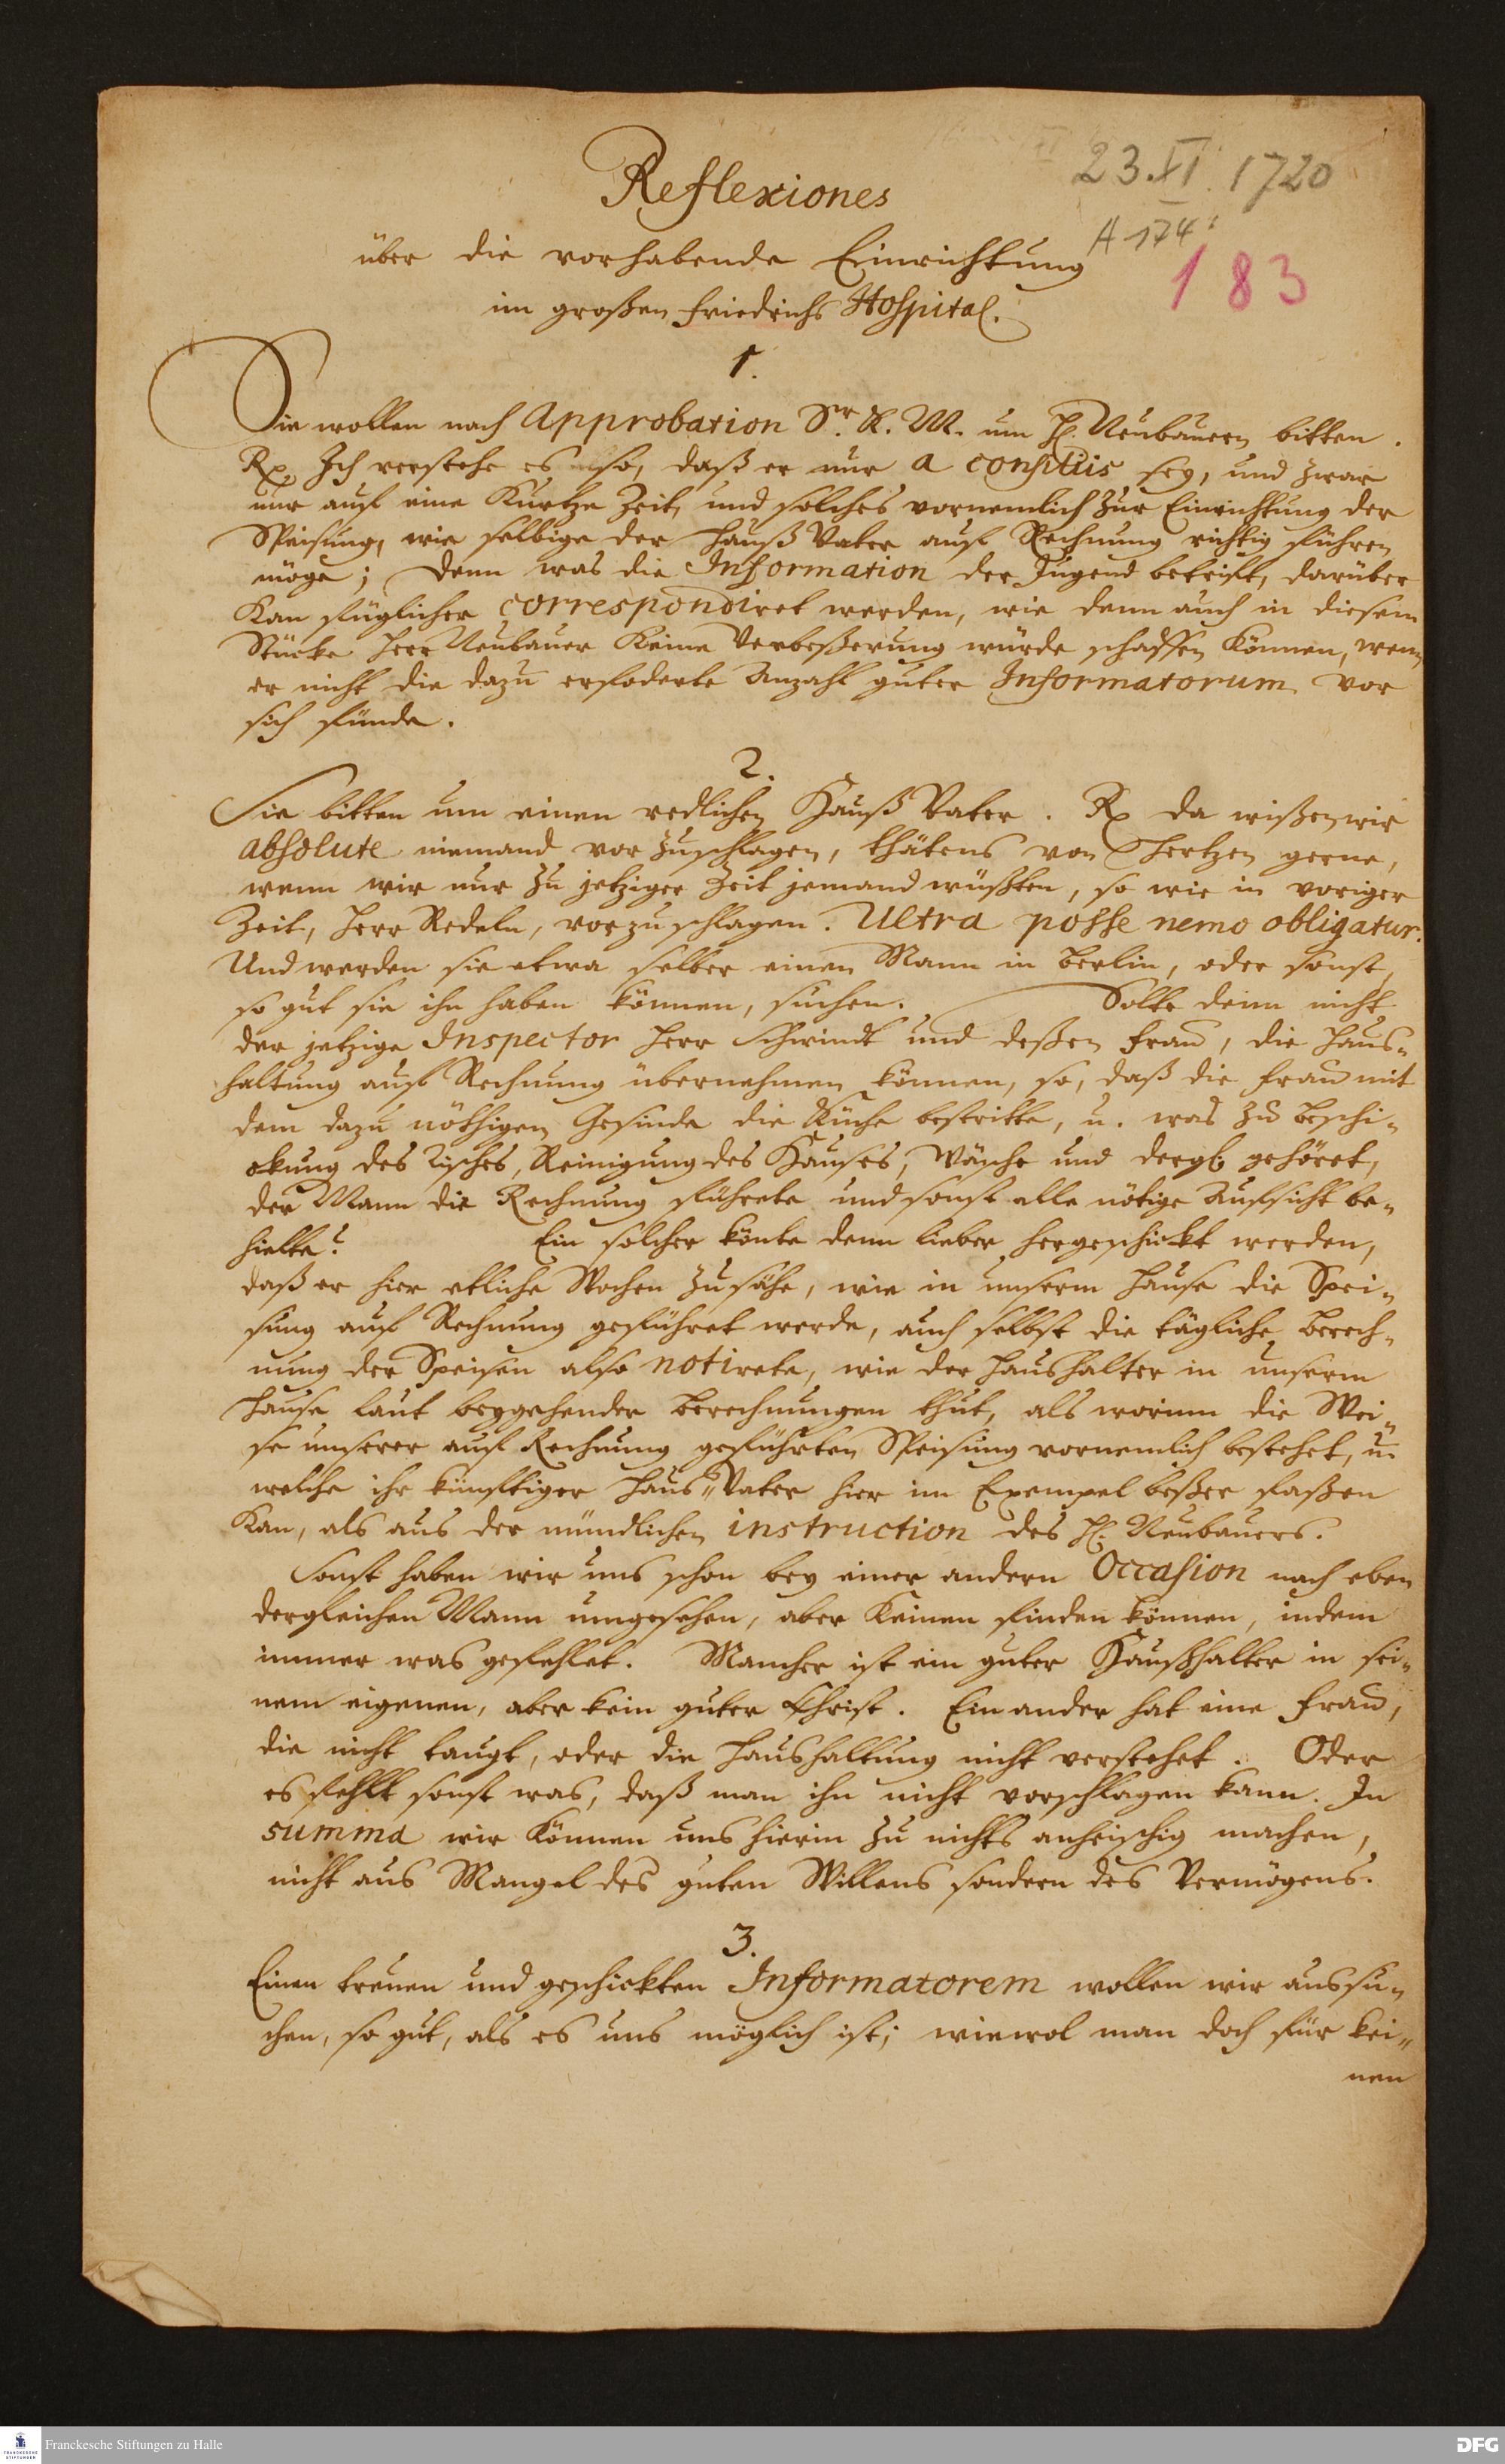 Reflexiones
23.XI. 1720
A 174
über die vorhabende Einrichtung
183
im großen Friedrichs Hospital.
1.
Sie wollen nach Approbation Sr. K. M. um H. Neubauern bitten.
Rx. Ich verstehe es also, daß er nur a consiliis sey, und zwar
nur auf eine Kurtze Zeit, und solches vornemlich zur Einrichtung der
Speisung, wie selbige der Hauß Vater auf Rechnung richtig führen
möge; Denn was die Information der Jugend betrift, darüber
Kan füglicher correspondiret werden, wie denn auch in diesem
Stücke Herr Neubauer Keine Verbeßerung würde schaffen Können, wenn
er nicht die dazu erfoderte Anzahl guter Informatorum vor
sich fünde.
2.
Sie bitten um einen redlichen Hauß Vater. Rx da wißen wir
absolute niemand vor zuschlagen, thätens von Hertzen gerne,
wenn wir nur zu jetziger Zeit jemand wüßten, so wie in voriger
Zeit, Herr Redeln, vorzuschlagen. Ultra posse nemo obligatur.
Und werden sie etwa selber einen Mann in Berlin, oder sonst,
so gut sie ihn haben können, suchen. Solte denn nicht
der jetzige Inspector Herr Schwindt und deßen Frau, die Haus-
haltung auf Rechnung übernehmen können, so, daß die Frau mit
dem dazu nöthigen Gesinde die Küche bestritte, u. was zu Beschi-
ckung des Tisches, Reinigung des Hauses, Wäsche und dergl. gehöret,
der Mann die Rechnung führete und sonst alle nötige Aufsicht be-
hielte? Ein solcher könte denn lieber hergeschickt werden,
daß er hier etliche Wochen zusähe, wie in unserm Hause die Spei-
sung auf Rechnung geführet werde, auch selbst die tägliche Berech-
nung der Speisen also notirete, wie der Haushalter in unserm
Hause laut beygehender Berechnungen thut, als worinn die Wei-
se unserer auf Rechnung geführten Speisung vornemlich bestehet, u.
welche ihr künftiger Haus-Vater hier im Exempel beßer faßen
Kan, als aus der mündlichen instruction des H. Neubauers.
Sonst haben wir uns schon bey einer andern Occasion nach eben
dergleichen Mann umgesehen, aber Keinen finden können, indem
immer was gefehlet. Mancher ist ein guter Haußhalter in sei-
nem eigenen, aber kein guter Christ. Ein ander hat eine Frau,
die nicht taugt, oder die Haushaltung nicht verstehet. Oder
es fehlt sonst was, daß man ihn nicht vorschlagen kann. In
summa wir Können uns hierin zu nichts anheischig machen,
nicht aus Mangel des guten Willens sondern des Vermögens.
3.
Einen treuen und geschickten Informatorem wollen wir aussu-
chen, so gut, als es uns möglich ist; wiewol man doch für kei-
nen
Franckesche Stiftungen zu Halle
DFG